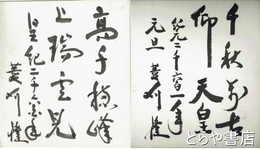 千秋万古
仰天皇
紀元二千六百一年
元旦 菱刈隆
高千穂峰
上瑞雲見
皇紀二千六百年
菱刈隆
とらや書店